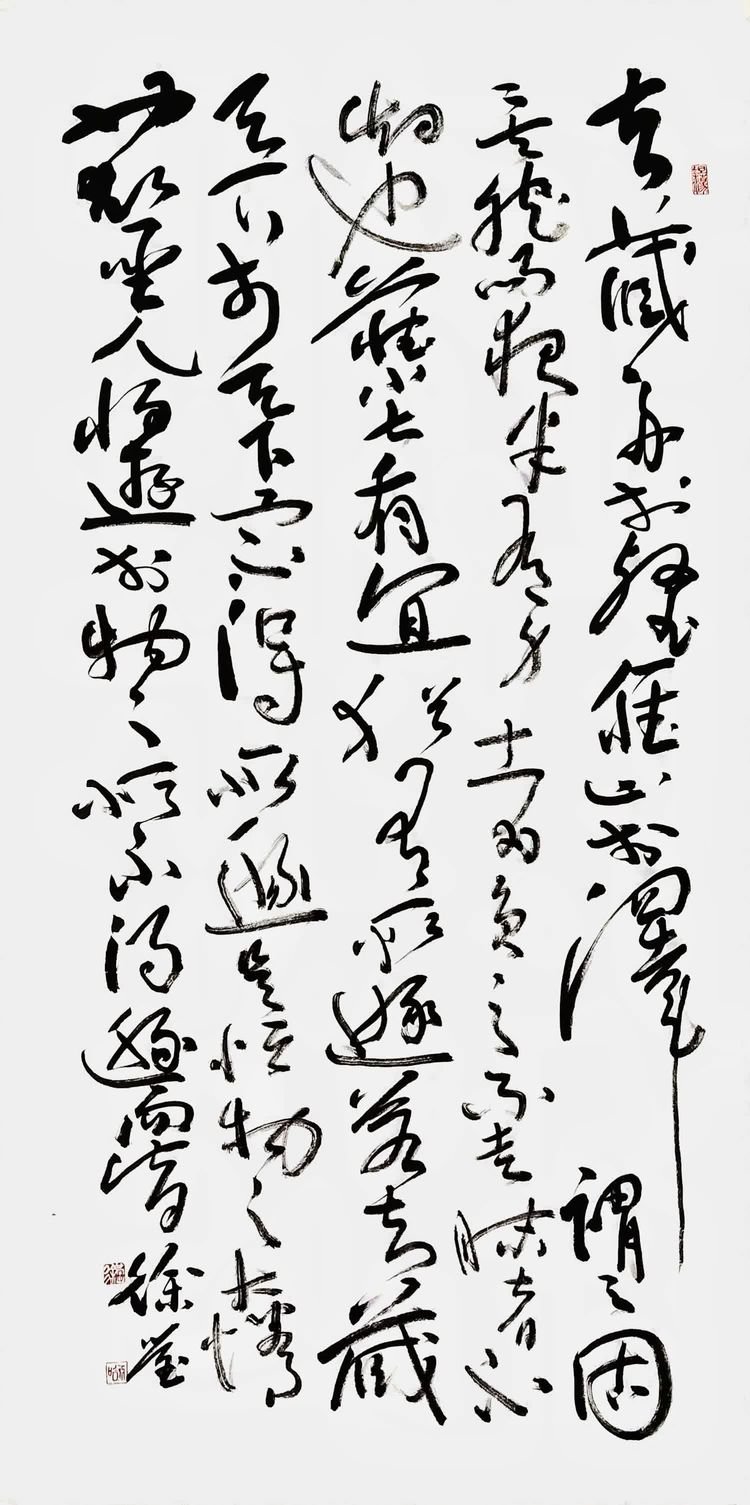 夫藏舟於壑藏山於澤謂之固
矣然而夜半有力者負之而走昧者不
知也藏小大有宜猶有所遯若夫藏
天下於天下而不得所遯是恆物之大情
也故聖人將遊於物之所不得遯而皆
徐